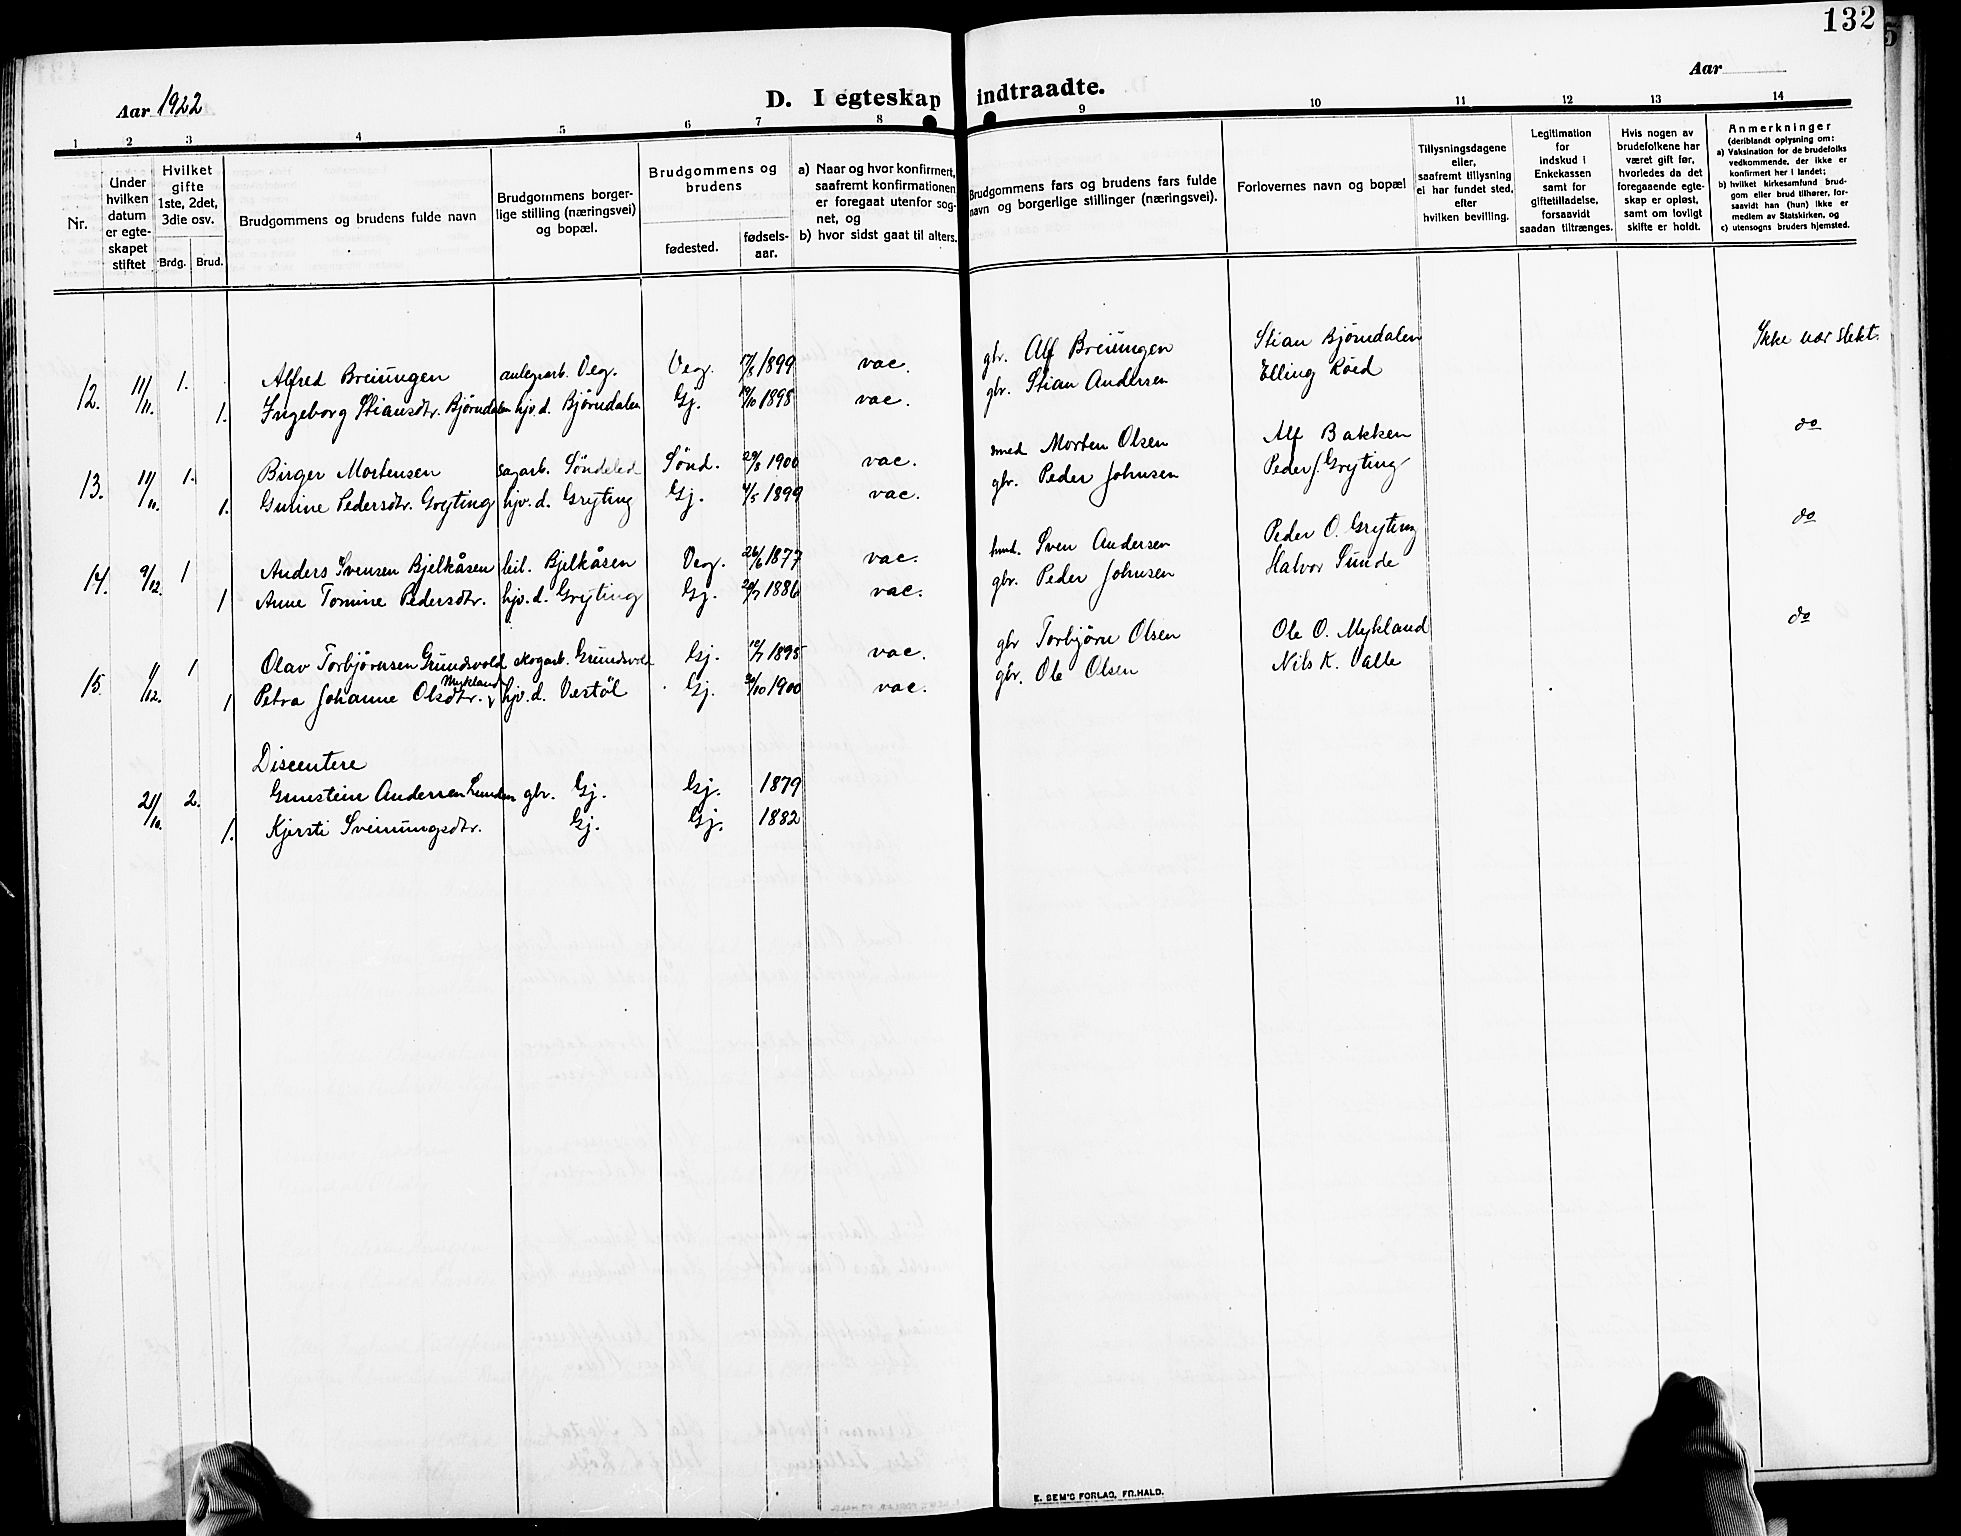 132
Aar 1922
D. I egteskap indtraadte.
Aar
1 2 3 4 5 6 7 8 9 10 11 12 13 14
Nr.
Under hvilken datum er egte-skapet stiftet
Hvilket gifte 1ste, 2det, 3die osv.
Brdg. Brud.
Brudgommens og brudens fulde navn
Brudgommens borger-lige stilling (næringsvei) og bopæl.
Brudgommens og brudens
fødested.
fødsels-aar.
a) Naar og hvor konfirmert, saafremt konfirmationen er foregaat utenfor sog-net, og
b) hvor sidst gaat til alters.
Brudgommens fars og brudens fars fulde navn og borgerlige stillinger (næringsvei).
Forlovernes navn og bopæl
Tillysningsdagene eller, saafremt tillysning ei har fundet sted, efter hvilken bevilling.
Legitimation for indskud i Enkekassen samt for giftetilladelse, forsaavidt saadan tiltrænges.
Hvis nogen av brudefolkene har været gift før, hvorledes da det foregaaende egte-skap er opløst, samt om lovligt skifte er holdt.
Anmerkninger
(deriblandt oplysning om:
a) Vaksination for de brudefolks vedkommende, der ikke er konfirmert her i landet;
b) hvilket kirkesamfund brud-gom eller brud tilhører, for-saavidt han (hun) ikke er medlem av Statskirken, og
c) utensogns bruders hjemsted.
12. 11/11. 1. Alfred Breiungen anlegsarb. Veg. Veg. 17/8 1899 vac. gbr. Alf Breiungen Stian Bjørndalen Ikke nær slekt.
1. Ingeborg Stiansdtr. Bjørndalen hjv. d. Bjørndalen Gj. 19/10 1898 vac. gbr. Stian Andersen Elling Røed
13. 11/11. 1. Birger Mortensen sagarb. Søndeled Sønd. 29/8 1900 vac. smed Morten Olsen Alf Bakken do
1. Gunine Pedersdtr. Gryting hjv. d. Gryting Gj. 4/5 1899 vac. gbr. Peder Johnsen Peder J. Gryting
14. 9/12. 1 Anders Svensen Bjelkåsen leil. Bjelkåsen Veg. 26/6 1877 vac. Sven Andersen Peder O. Gryting do
1 Anne Tomine Pedersdtr. hjv. d. Gryting Gj. 20/7 1886 vac. gbr. Peder Johnsen Halvor Sunde
15. 1/12. 1 Olav Torbjørnsen Grundsvold skogarb. Grundsvold Gj. 12/7 1895 vac. gbr Torbjørn Olsen Ole O. Mykland do
1 Petra Johanne Olsdtr. Mykland hjv. d. Vestøl Gj. 30/10 1900 vac. gbr. Ole Olsen Nils K. Valle
Discentere
21/10. 2. Gunstein Andersen Lunden gbr. Gj. Gj. 1879
1. Kjersti Sveinungsdtr. Gj. Gj. 1882
E. SEM'S FORLAG, FR.HALD.